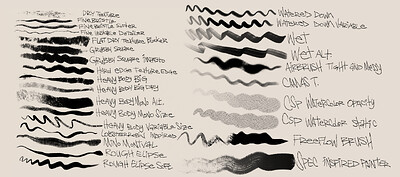 DRY TEXTURE
FINE BRISTLE
FINE BRISTLE RUFFER
FINE VARIABLE DETAILER
FLAT DRY TEXTURE BLOCKER
GRUBBY SQUARE
GRUBBY SQUARE IMPASTO
HARD EDGE TEXTURE EDGE
HEAVY BODY BIG
HEAVY BODY BIG DRY
HEAVY BODY MONO ALT.
HEAVY BODY MONO SIZE
HEAVY BODY VARIABLE SIZE
INSPIRED
MONO MONTIVAL
ROUGH ELIPSE
ROUGH ELIPSE SOFT
WATERED DOWN
WATERED DOWN VARIABLE
WET
WET ALT
AIRBRUSH TIGHT AND MESSY
CANVAS T.
CSP WATERCOLOR OPACITY
CSP WATERCOLOR STATIC
FREEFLOW BRUSH
SPEC INSPIRED PAINTER